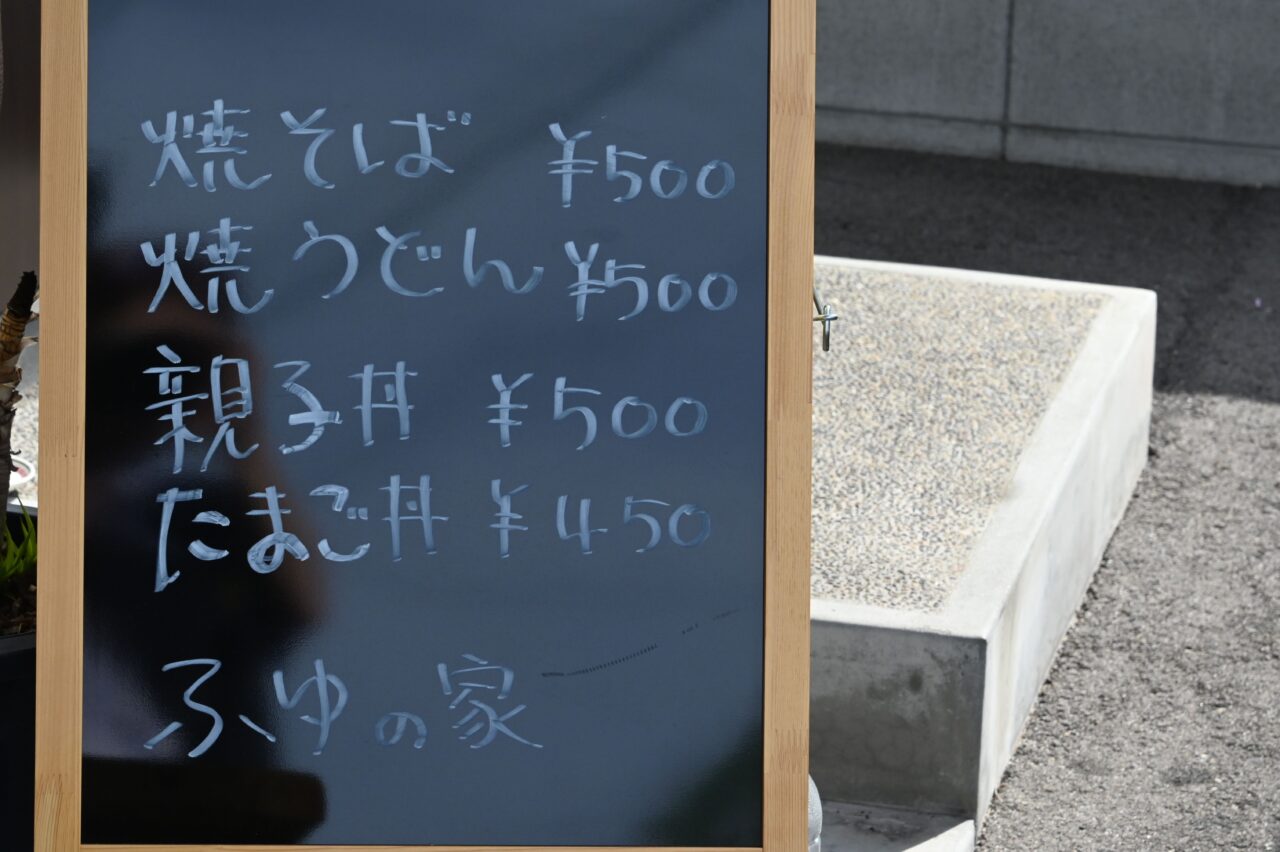 焼そば ¥500
焼うどん ¥500
親子丼 ¥500
たまご丼 ¥450
ふゆの家